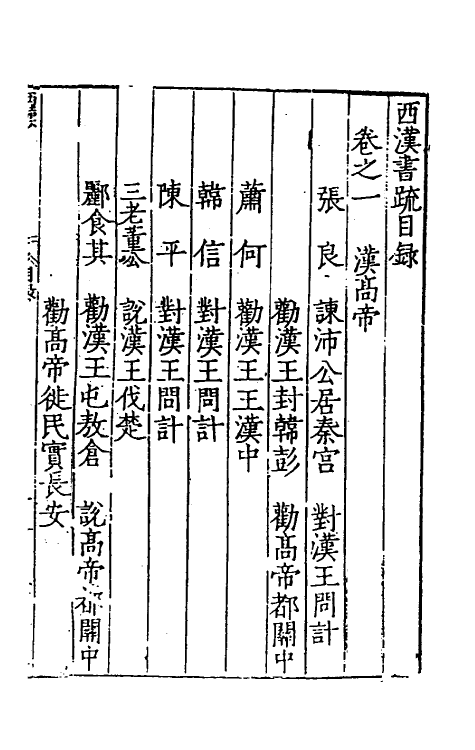 西漢書疏目録
卷之一 漢髙帝
張良 諫沛公居秦宫 對漢王問計
勸漢王封韓彭 勸髙帝都關中
蕭何 勸漢王王漢中
韓信 對漢王問計
陳平 對漢王問計
三老董公 說漢王伐楚
酈食其 勸漢王屯敖倉 說髙帝都關中
勸髙帝徙民實長安